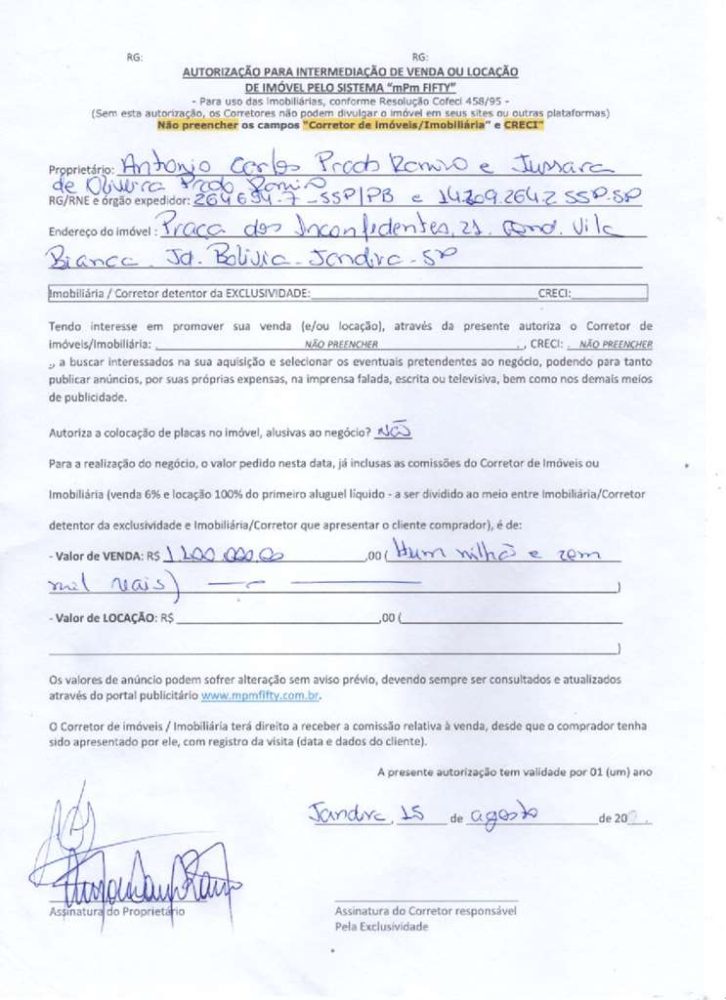 RG: RG:
AUTORIZAÇÃO PARA INTERMEDIAÇÃO DE VENDA OU LOCAÇÃO
DE IMÓVEL PELO SISTEMA "mPm FIFTY"
- Para uso das Imobiliárias, conforme Resolução Cofeci 458/95 -
(Sem esta autorização, os Corretores não podem divulgar o imóvel em seus sites ou outras plataformas)
Não preencher os campos "Corretor de imóveis/Imobiliária" e CRECI"
Proprietário: Antonio Carlos Prado Romiro e Jussara
de Oliveira Prado Romiro
RG/RNE e órgão expedidor: 264654-7-SSP/PB e 14.209.264.2 SSP.SP
Endereço do imóvel: Praça dos Inconfidentes, 21. Cond. Vila
Bianca. Jd. Bolivia. Jandira - SP
Imobiliária / Corretor detentor da EXCLUSIVIDADE: CRECI:
Tendo interesse em promover sua venda (e/ou locação), através da presente autoriza o Corretor de
imóveis/Imobiliária: NÃO PREENCHER , CRECI: NÃO PREENCHER
, a buscar interessados na sua aquisição e selecionar os eventuais pretendentes ao negócio, podendo para tanto
publicar anúncios, por suas próprias expensas, na imprensa falada, escrita ou televisiva, bem como nos demais meios
de publicidade.
Autoriza a colocação de placas no imóvel, alusivas ao negócio? Não
Para a realização do negócio, o valor pedido nesta data, já inclusas as comissões do Corretor de Imóveis ou
Imobiliária (venda 6% e locação 100% do primeiro aluguel líquido - a ser dividido ao meio entre Imobiliária/Corretor
detentor da exclusividade e Imobiliária/Corretor que apresentar o cliente comprador), é de:
- Valor de VENDA: R$ 1.100.000,00 ,00 ( Hum milhão e cem
mil reais) )
- Valor de LOCAÇÃO: R$ ,00 (
)
Os valores de anúncio podem sofrer alteração sem aviso prévio, devendo sempre ser consultados e atualizados
através do portal publicitário www.mpmfifty.com.br.
O Corretor de imóveis / Imobiliária terá direito a receber a comissão relativa à venda, desde que o comprador tenha
sido apresentado por ele, com registro da visita (data e dados do cliente).
A presente autorização tem validade por 01 (um) ano
Jandira, 15 de agosto de 20
Assinatura do Proprietário
Assinatura do Corretor responsável
Pela Exclusividade